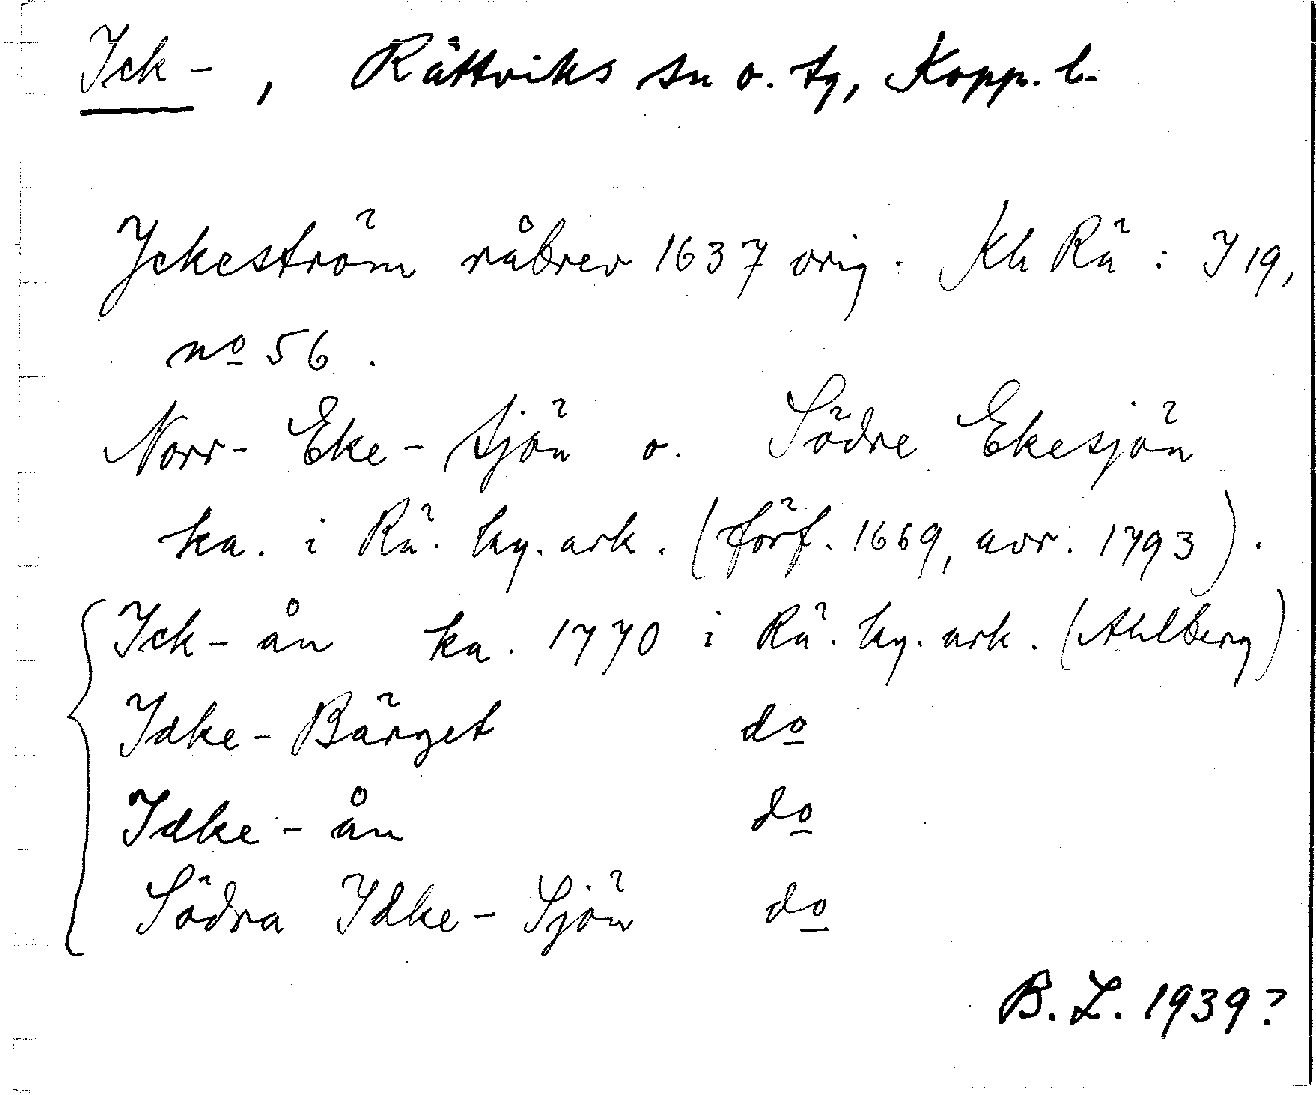 Ick-, Rättviks sn o. tg, Kopp. l.
Yckeström råbrev 1637 orig. Kla Rä: I 19,
no 56.
Norr-Eke-sjön o. Södre Ekesjön
ka. i Rä. hg. ark. (förf. 1669, avr. 1793).
Ick-ån ka. 1770 i Rä. hg. ark. (Ahlberg)
Idke-Bärget do
Idke-ån do
Södra Idke-Sjön do
B. L. 1939?